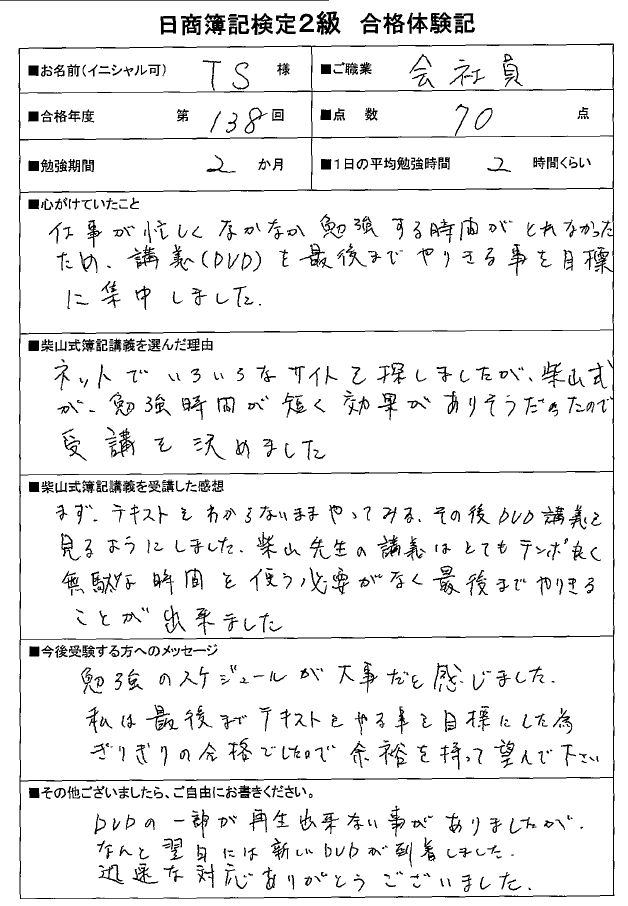 日商簿記検定2級 合格体験記
■お名前(イニシャル可) TS 様 ■ご職業 会社員
■合格年度 第 138 回 ■点 数 70 点
■勉強期間 2 か月 ■1日の平均勉強時間 2 時間くらい
■心がけていたこと
仕事が忙しくなかなか勉強する時間がとれなかった
ため、講義(DVD)を最後までやりきる事を目標
に集中しました.
■柴山式簿記講義を選んだ理由
ネットでいろいろなサイトを探しましたが、柴山式
が、勉強時間が短く効果がありそうだったので
受講を決めました
■柴山式簿記講義を受講した感想
まず、テキストをわからないままやってみる、その後DVD講義を
見るようにしました、柴山先生の講義はとてもテンポ良く
無駄な時間を使う必要がなく最後までやりきる
ことが出来ました
■今後受験する方へのメッセージ
勉強のスケジュールが大事だと感じました.
私は最後までテキストをやる事を目標にした為
ぎりぎりの合格でしたので余裕を持って望んで下さい
■その他ございましたら、ご自由にお書きください。
DVDの一部が再生出来ない事がありましたが、
なんと翌日には新しいDVDが到着しました.
迅速な対応ありがとうございました.